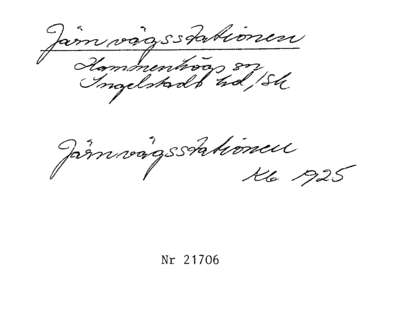 Järnvägsstationen
Hammenhögs sn
Ingelstads hd, Sk
Järnvägsstationen
Kb 1925
Nr 21706